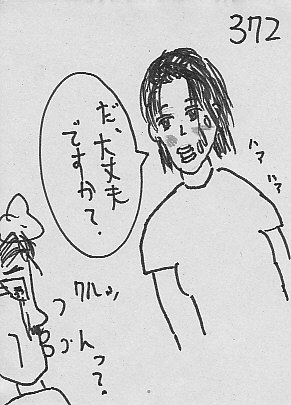 372
だ、大丈夫
ですか?
ハァ
ハァ
クルッ
うんっ?